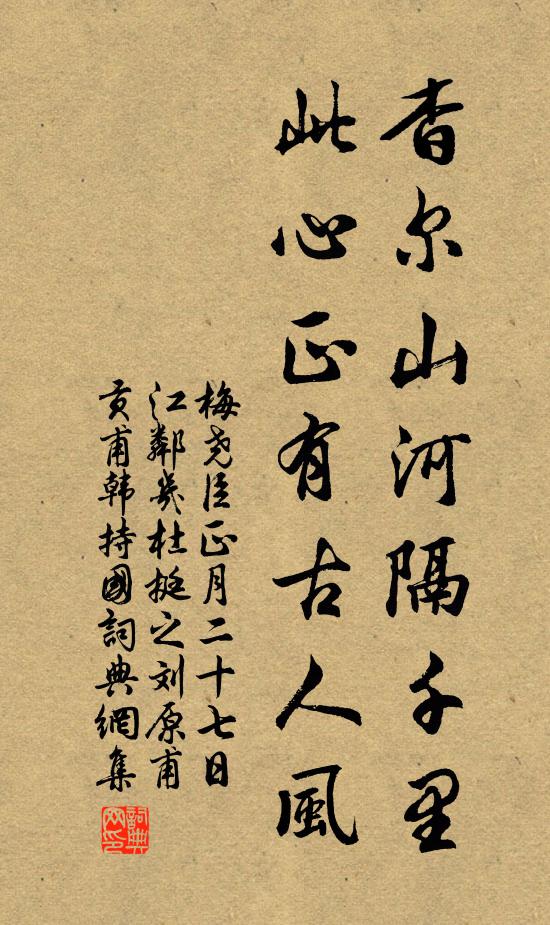 杳尔山河隔千里
此心正有古人風
梅尧臣正月二十七日
江鄰幾杜挺之刘原甫
贡甫韩持國詞典網集
詞典
网印